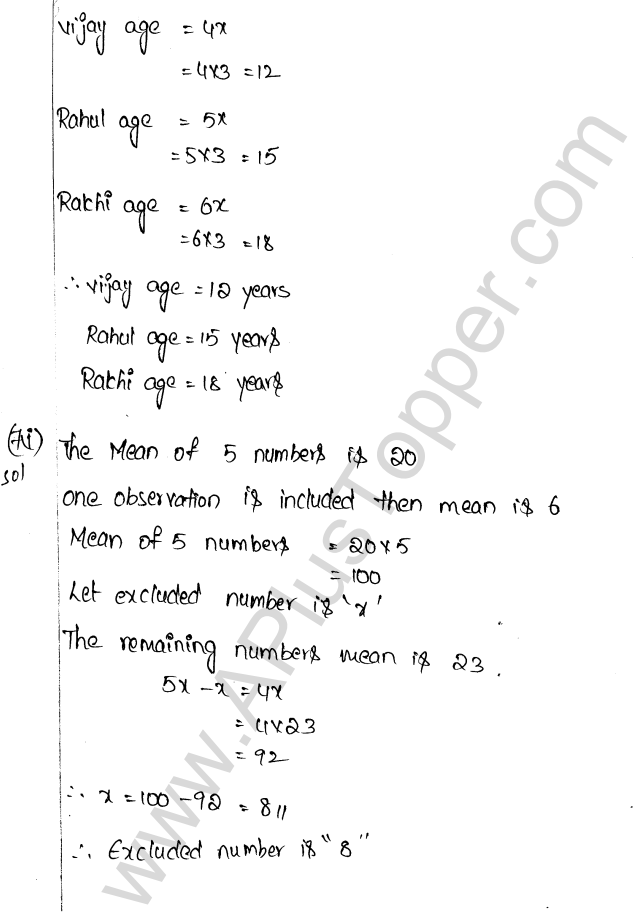 Vijay age = 4x
= 4x3 = 12
Rahul age = 5x
= 5x3 = 15
Rakhi age = 6x
= 6x3 = 18
∴ Vijay age = 12 years
Rahul age = 15 years
Rakhi age = 18 years
(7i) The Mean of 5 numbers is 20
sol
one observation is included then mean is 6
Mean of 5 numbers = 20x5
= 100
Let excluded number is 'x'
The remaining numbers mean is 23.
5x - x = 4x
= 4x23
= 92
∴ x = 100 - 92 = 8//
∴ Excluded number is "8"
www.APlusTopper.com